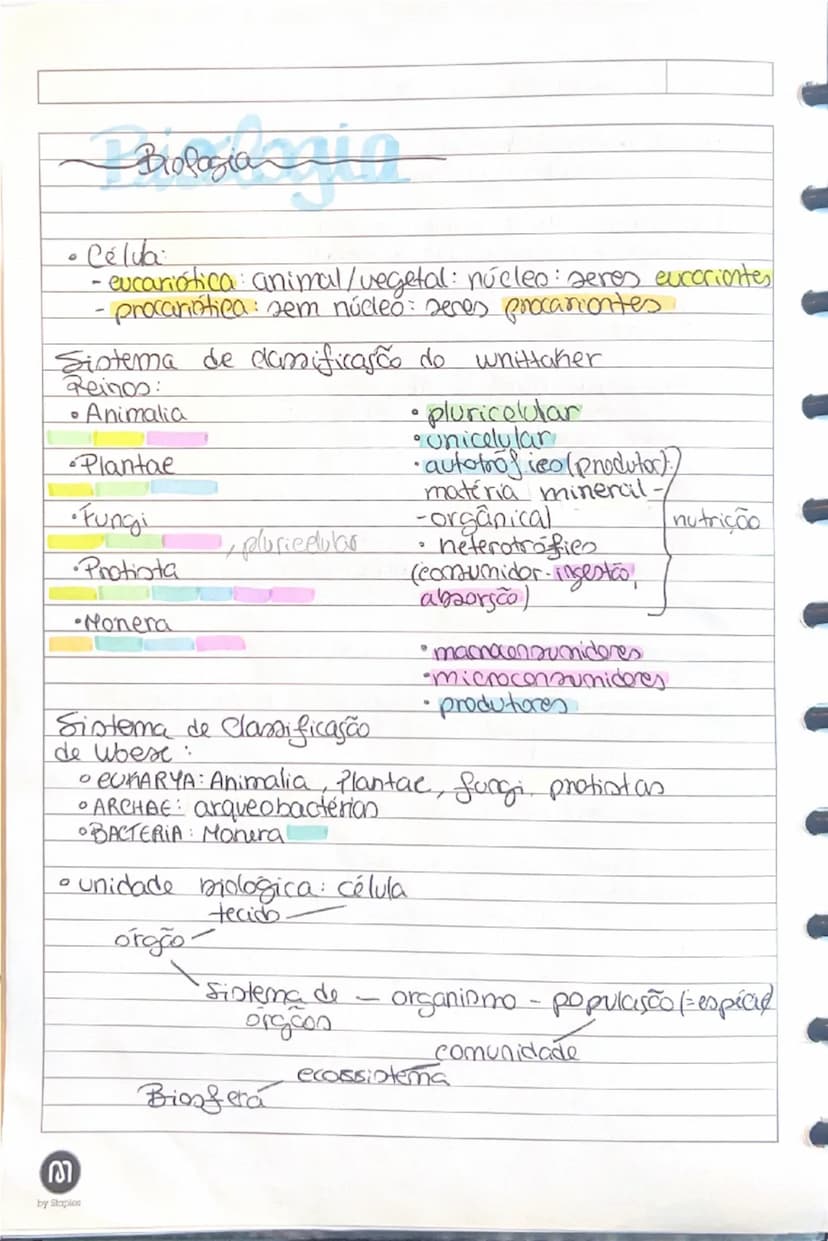 Biologia
• Célula:
- eucariótica: animal/vegetal: núcleo: seres eucariontes
- procariótica: sem núcleo: seres procariontes
Sistema de classificação do Whittaker
Reinos:
• Animalia
• Plantae
• Fungi
, pluricelular
• Protista
• Monera
• pluricelular
• unicelular
• autotrófico (produtor):
matéria mineral -
- orgânical
nutrição
• heterotrófico
(consumidor - ingestão,
absorção)
• macroconsumidores
• microconsumidores
• produtores
Sistema de Classificação
de Woese:
° EUKARYA: Animalia, Plantae, fungi, protistas
° ARCHAE: arqueobactérias
° BACTERIA: Monera
° unidade biológica: célula
tecido
órgão
Sistema de — organismo - população (=espécie)
órgãos
comunidade
ecossistema
Biosfera
by Staples